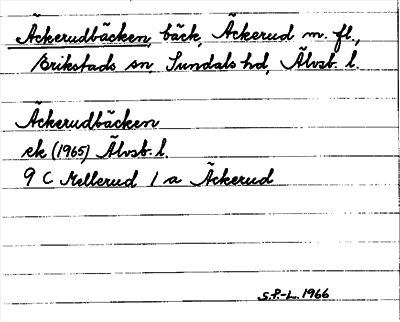 Äckerudbäcken, bäck, Äckerud m. fl.,
Brikstads sn, Sundals hd, Älvsb. l.
Äckerudbäcken
ek (1965) Älvsb. l.
9 C Mellerud 1 a Äckerud
S.F.-L. 1966